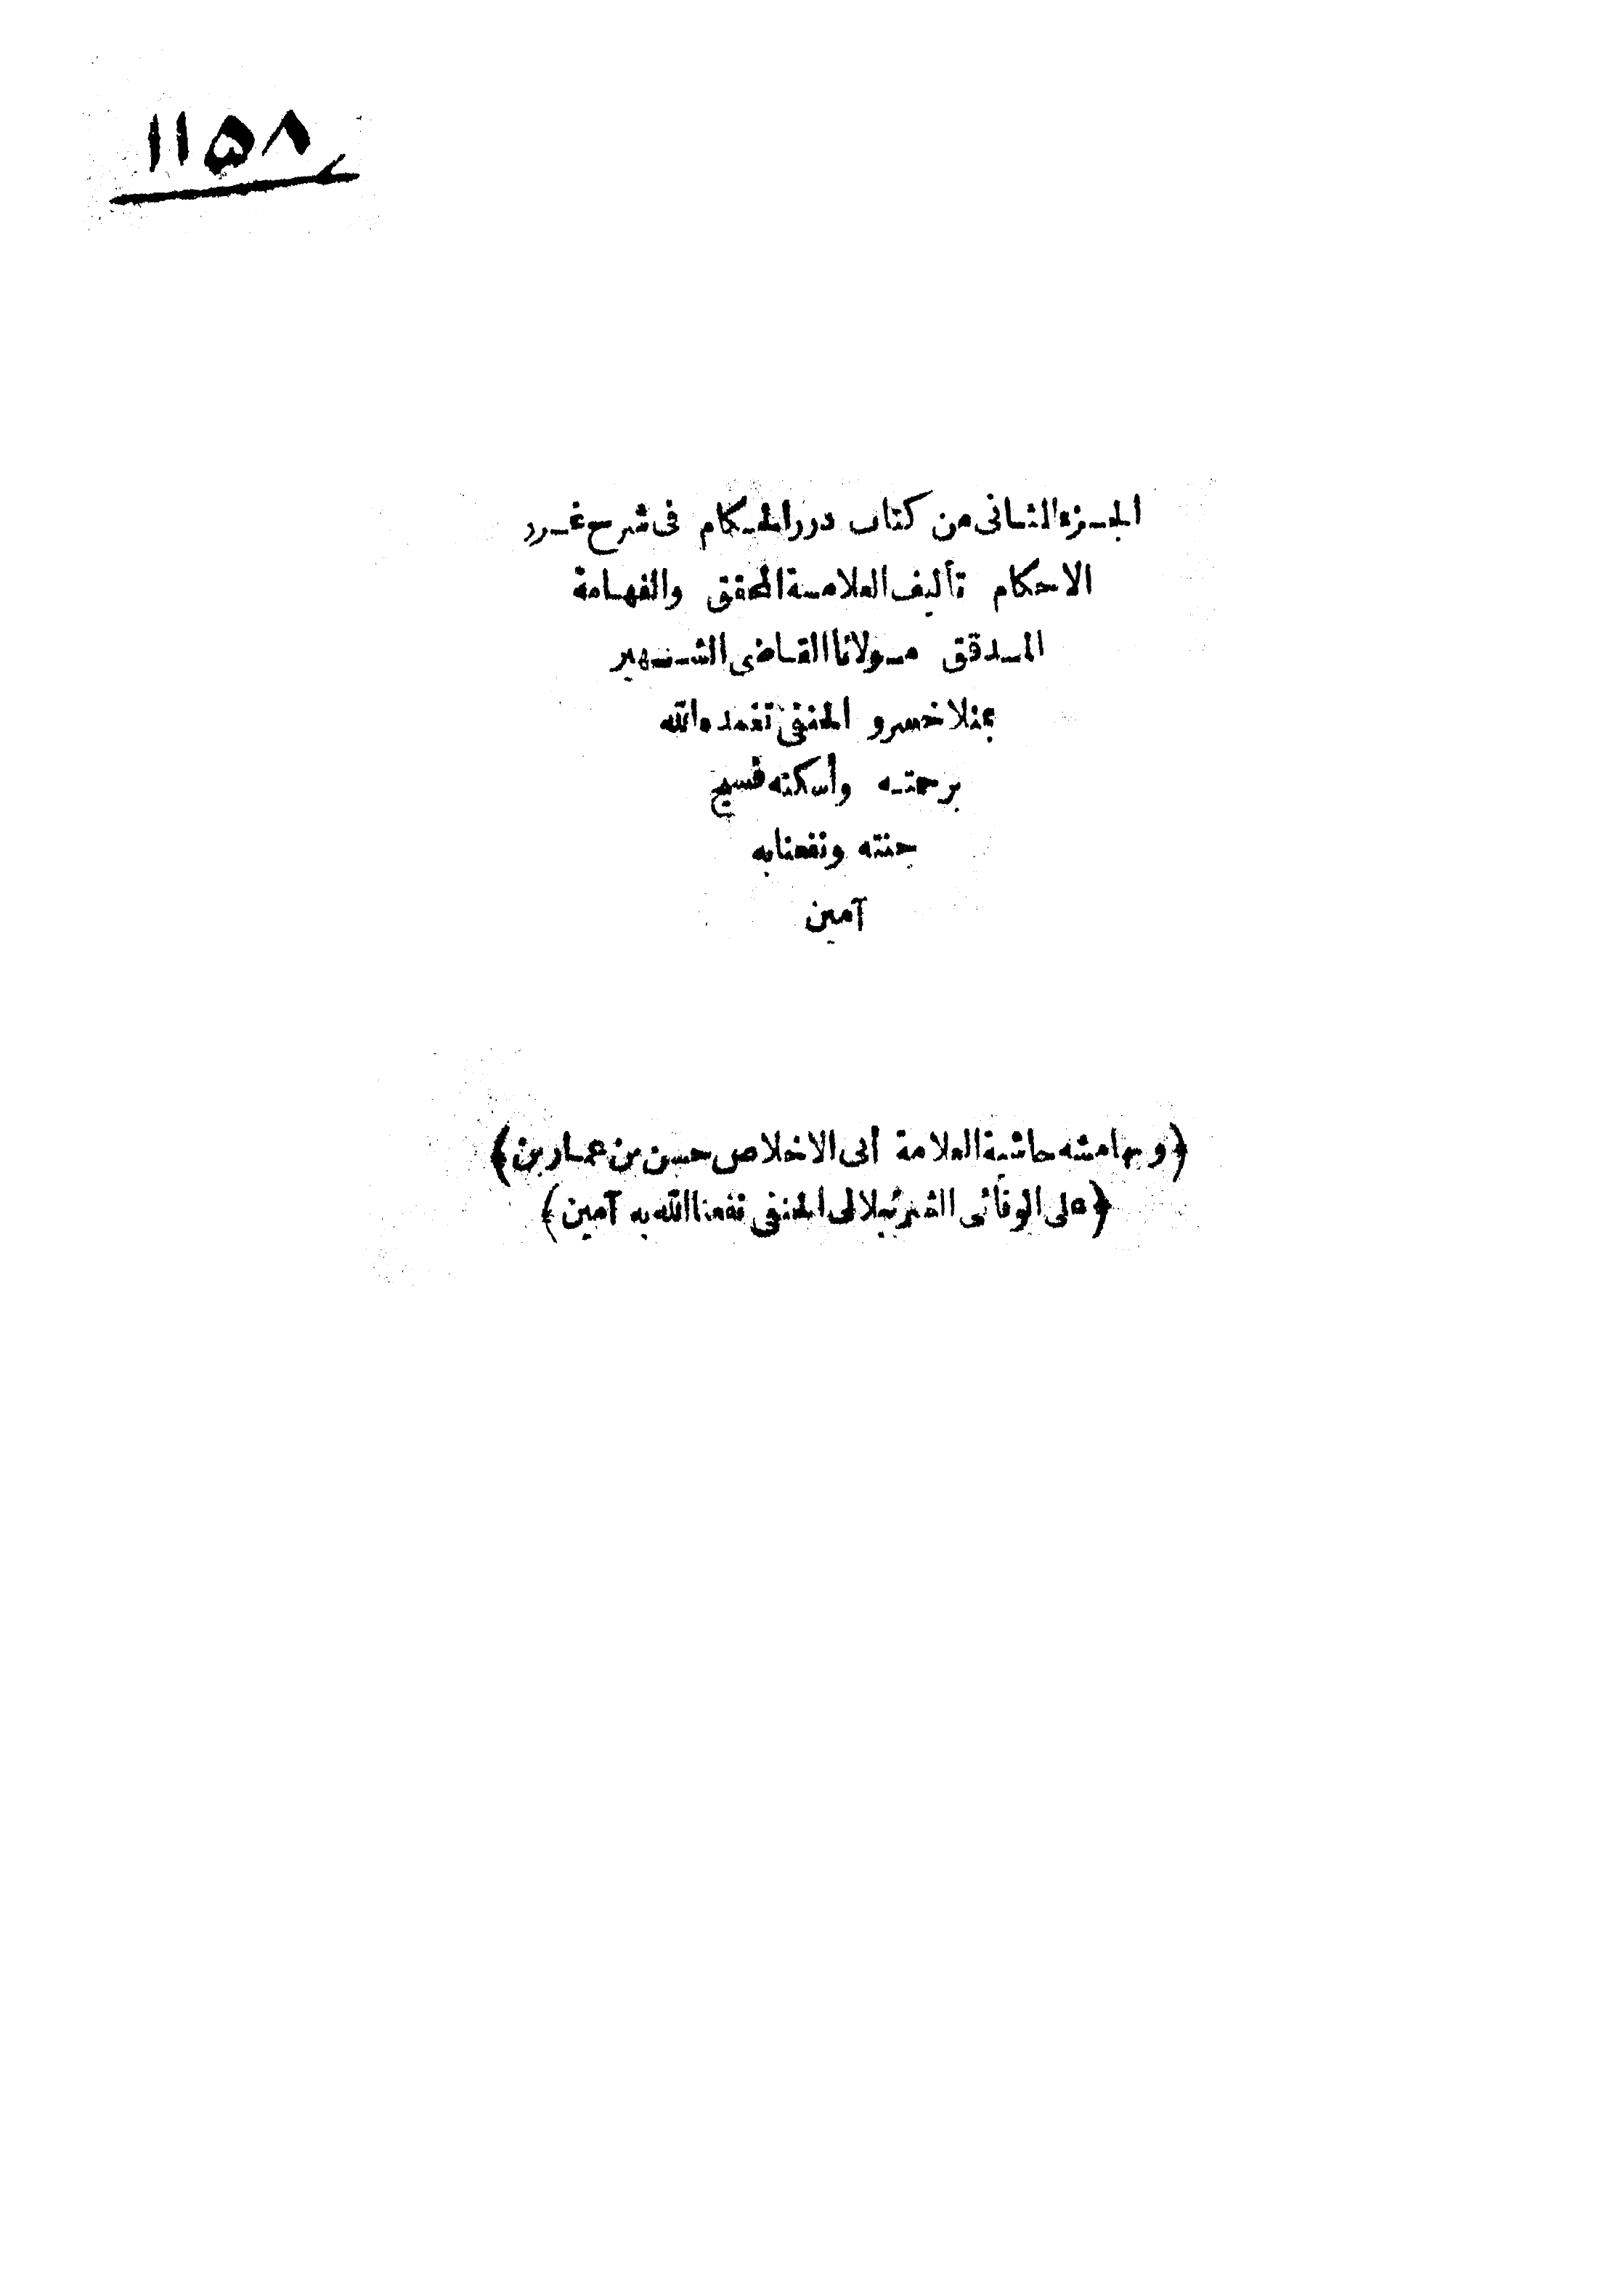 ١١٥٨
الجزء الثاني من كتاب درر الحكام في شرح غرر
الاحكام تأليف العلامة المحقق والفهامة
المدقق مولانا القاضي الشهير
بمنلا خسرو الحنفي تغمده الله
برحمته وأسكنه فسيح
جنته ونفعنا به
آمين
﴿وبهامشه حاشية العلامة أبى الاخلاص حسن بن عمار بن﴾
﴿على الوفائى الشرنبلالى الحنفى نفعنا الله به آمين﴾